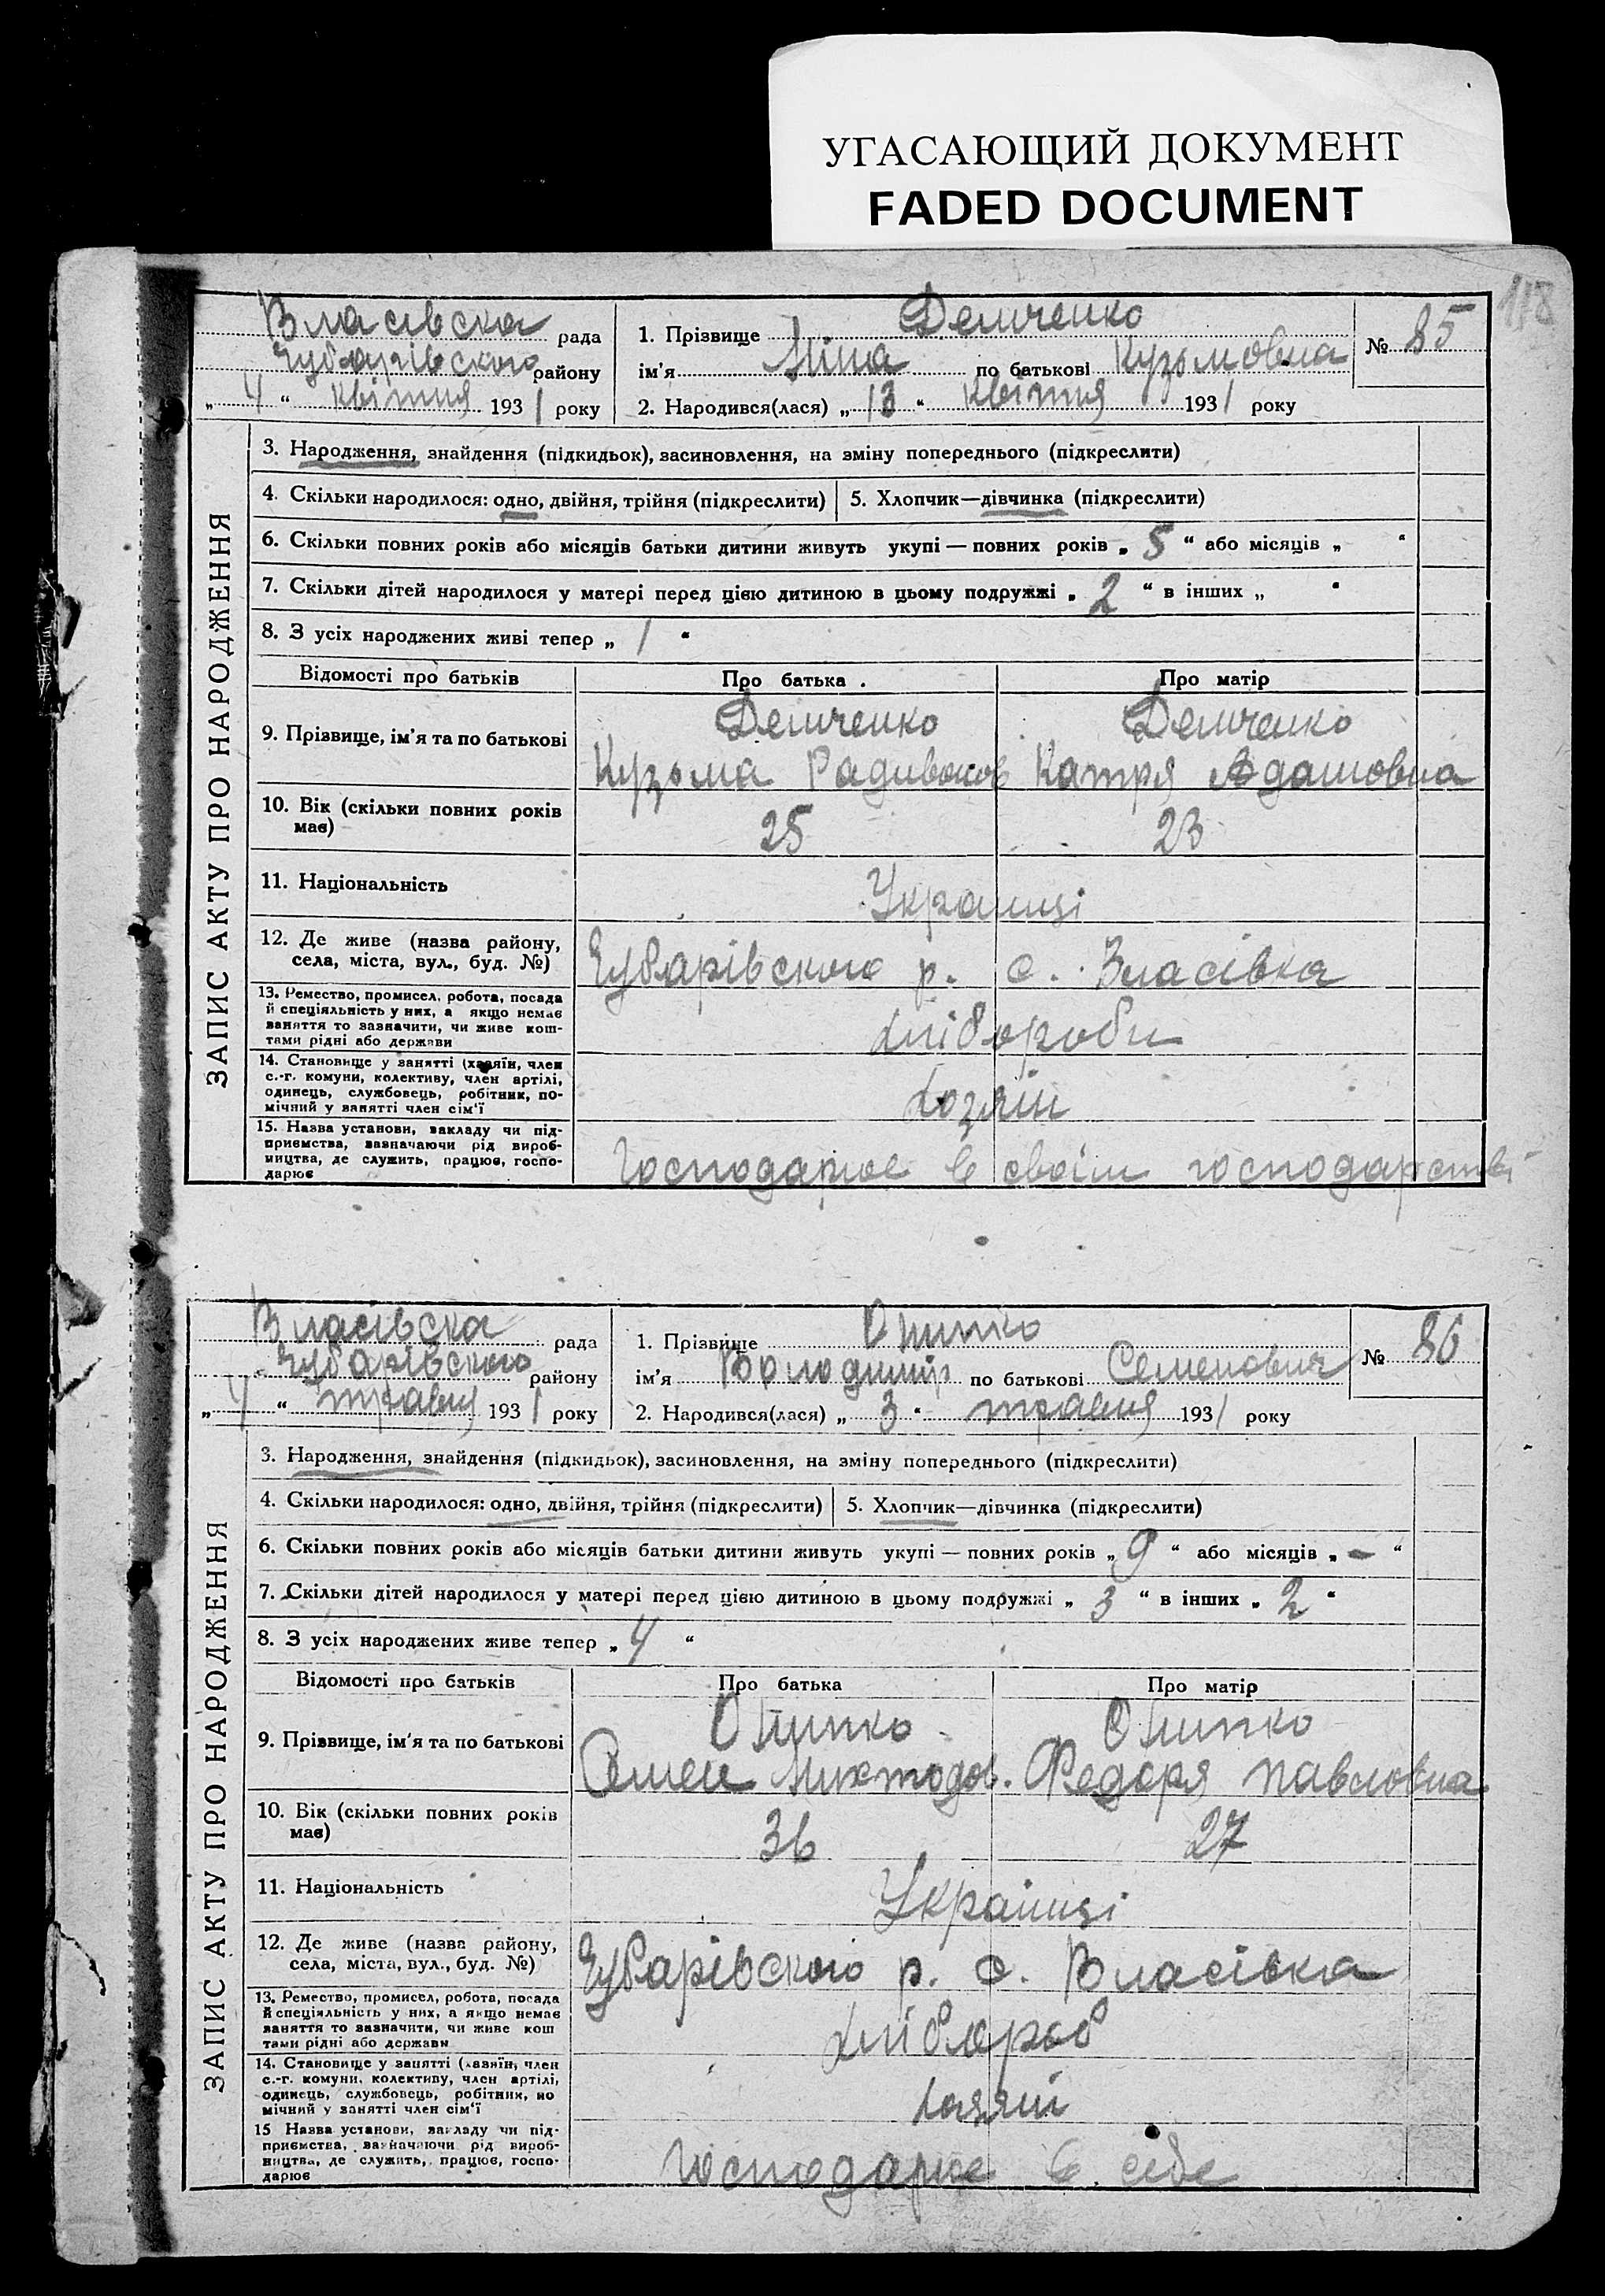 УГАСАЮЩИЙ ДОКУМЕНТ
FADED DOCUMENT
118
Власівска рада
Чубарівского району
„4“ квітня 1931 року
1. Прізвище Демченко
ім'я Ніна по батькові Кузьмовна
2. Народився(лася) „13“ квітня 1931 року
№ 85
ЗАПИС АКТУ ПРО НАРОДЖЕННЯ
3. Народження, знайдення (підкидьок), засиновлення, на зміну попереднього (підкреслити)
4. Скільки народилося: одно, двійня, трійня (підкреслити) 5. Хлопчик—дівчинка (підкреслити)
6. Скільки повних років або місяців батьки дитини живуть укупі — повних років „5“ або місяців „ “
7. Скільки дітей народилося у матері перед цією дитиною в цьому подружжі „2“ в інших „ “
8. З усіх народжених живі тепер „1“
Відомості про батьків Про батька. Про матір
9. Прізвище, ім'я та по батькові
Демченко Демченко
Кузьма Радивонов Катря Адамовна
10. Вік (скільки повних років
має)
25 23
11. Національність Українці
12. Де живе (назва району,
села, міста, вул., буд. №)
Чубарівского р. с. Власівка
13. Ремество, промисел, робота, посада
й спеціяльність у них, а якщо немає
заняття то зазначити, чи живе кош-
тами рідні або держави
Хлібороби
14. Становище у занятті (хазяїн, член
с.-г. комуни, колективу, член артілі,
одинець, службовець, робітник, по-
мічний у занятті член сім'ї
Хозяїн
15. Назва установи, закладу чи під-
приємства, зазначаючи рід вироб-
ництва, де служить, працює, госпо-
дарює
Господарює в своїм господарстві
Власівска рада
Чубарівского району
„4“ травня 1931 року
1. Прізвище Онипко
ім'я Володимир по батькові Семенович
2. Народився(лася) „3“ травня 1931 року
№ 86
ЗАПИС АКТУ ПРО НАРОДЖЕННЯ
3. Народження, знайдення (підкидьок), засиновлення, на зміну попереднього (підкреслити)
4. Скільки народилося: одно, двійня, трійня (підкреслити) 5. Хлопчик—дівчинка (підкреслити)
6. Скільки повних років або місяців батьки дитини живуть укупі — повних років „9“ або місяців „-“
7. Скільки дітей народилося у матері перед цією дитиною в цьому подружжі „3“ в інших „2“
8. З усіх народжених живе тепер „4“
Відомості про батьків Про батька Про матір
9. Прізвище, ім'я та по батькові
Онипко Онипко
Семен Федоря Павловна
10. Вік (скільки повних років
має)
36 27
11. Національність Українці
12. Де живе (назва району,
села, міста, вул., буд. №)
Чубарівского р. с. Власівка
13. Ремество, промисел, робота, посада
й спеціяльність у них, а якщо немає
заняття то зазначити, чи живе кош
тами рідні або держави
Хлібороб
14. Становище у занятті (хазяїн, член
с.-г. комуни, колективу, член артілі,
одинець, службовець, робітник, по
мічний у занятті член сім'ї
Хазяїн
15 Назва установи, закладу чи під-
приємства, зазначаючи рід вироб-
ництва, де служить, працює, госпо-
дарює
Господарює в себе